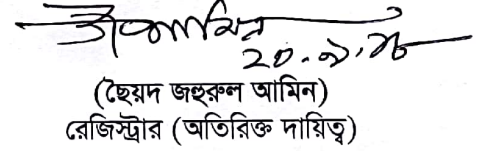 ২০.৯.২৮
(ছৈয়দ জহুরুল আমিন)
রেজিস্ট্রার (অতিরিক্ত দায়িত্ব)